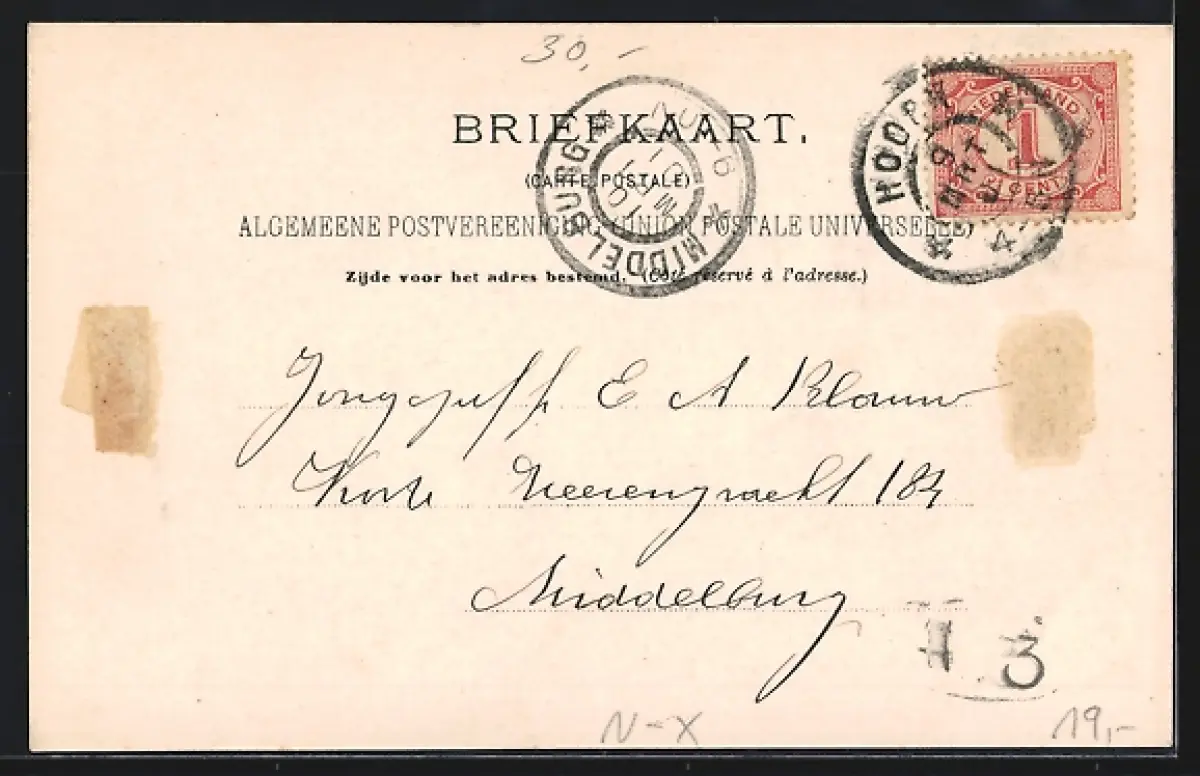 30,-
BRIEFKAART.
(CARTE POSTALE)
ALGEMEENE POSTVEREENIGING (UNION POSTALE UNIVERSELLE)
Zijde voor het adres bestemd. (Côté réservé à l'adresse.)
MIDDELBURG
HOORN
9 MRT
NEDERLAND
1
CENT
E A Blauw
Korte Heerengracht 184
Middelburg
3
N-X
19,-